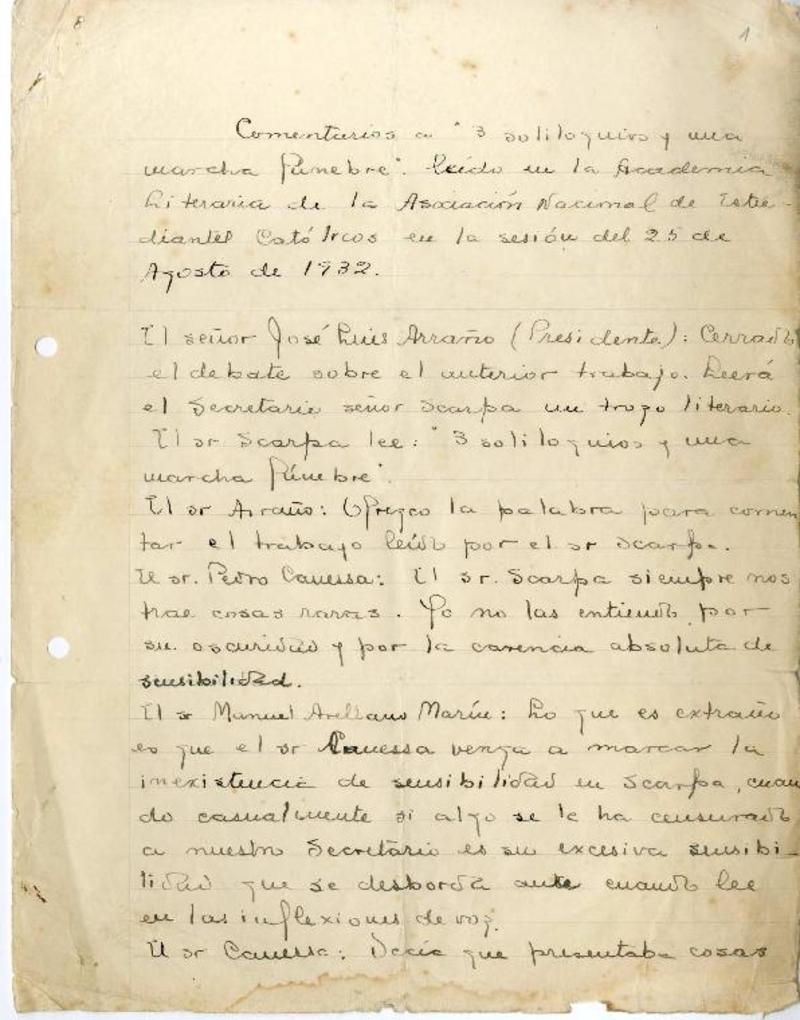 8
1
Comentarios a "3 soliloquios y una
marcha fúnebre". Leído en la Academia
Literaria de la Asociación Nacional de Estu-
diantes Católicos en la sesión del 25 de
Agosto de 1932.
El señor José Luis Arraño (Presidente): Cerrado
el debate sobre el anterior trabajo. Leerá
el Secretario señor Scarpa un trozo literario.
El sr Scarpa lee: "3 soliloquios y una
marcha fúnebre".
El sr Arraño: Ofrezco la palabra para comen
tar el trabajo leído por el sr Scarpa.
El sr. Pedro Canessa: El sr. Scarpa siempre nos
trae cosas raras. Yo no las entiendo por
su oscuridad y por la carencia absoluta de
sensibilidad.
El sr Manuel Arellano Marín: Lo que es extraño
es que el sr Canessa venga a marcar la
inexistencia de sensibilidad en Scarpa, cuan
do casualmente si algo se le ha censurado
a nuestro Secretario es su excesiva sensibi-
lidad que se desborda cuando lee
en las inflexiones de voz.
El sr Canessa: Decía que presentaba cosas